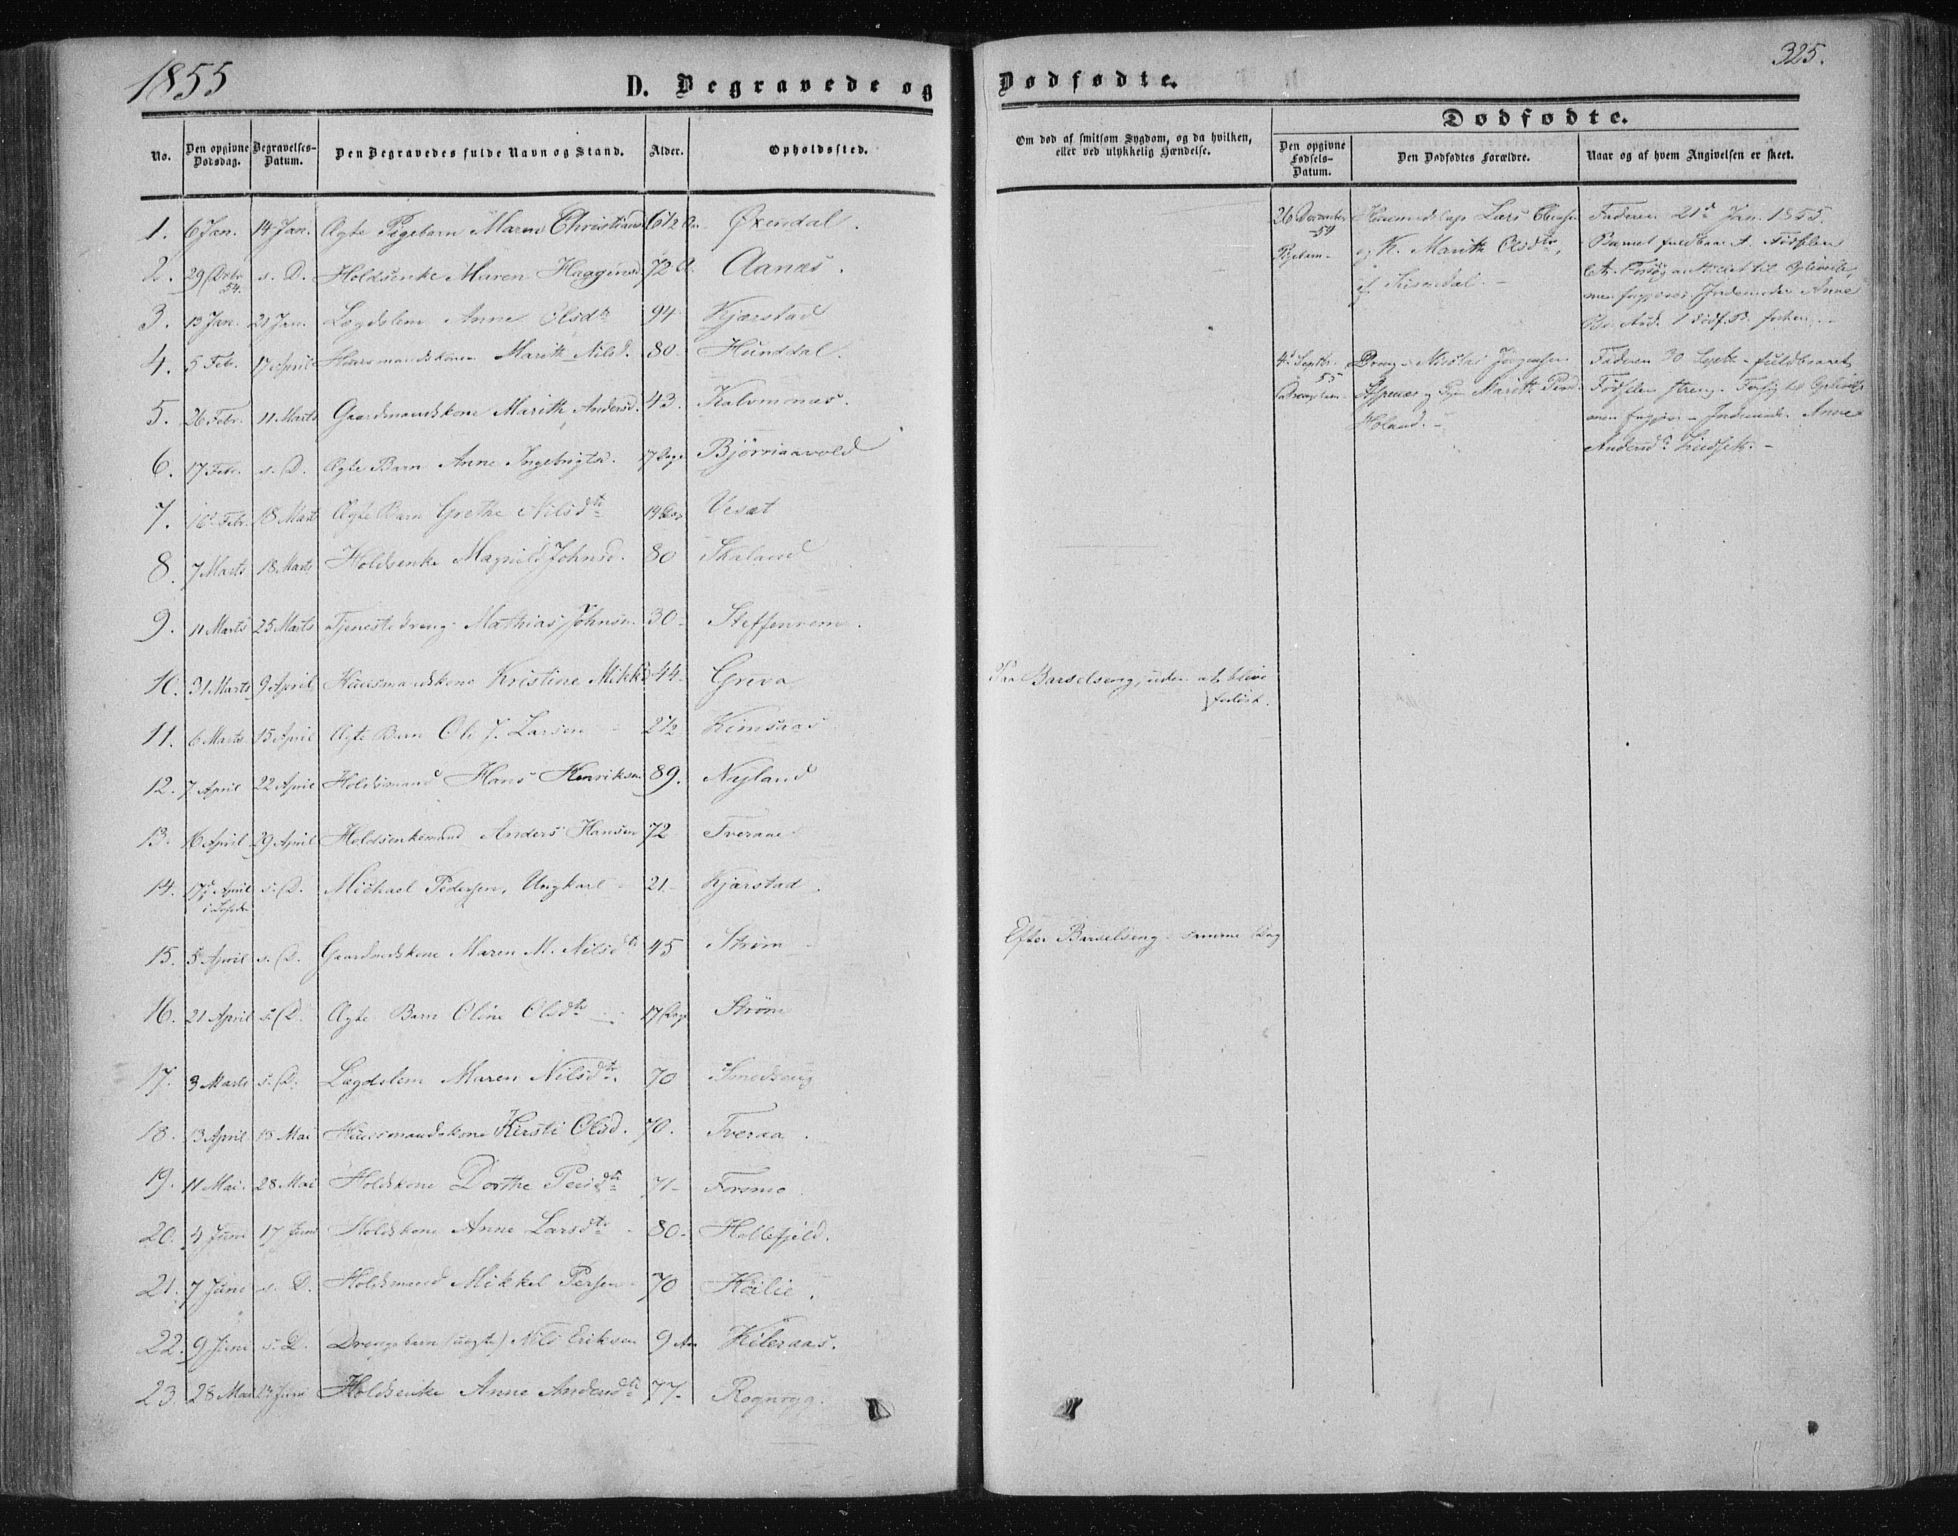 1855
D. Begravede og
Dødfødte.
325.
No.
Den opgivne Dødsdag.
Begravelses-Datum.
Den Begravedes fulde Navn og Stand.
Alder.
Opholdssted.
Om død af smitsom Sygdom, og da hvilken,
eller ved ulykkelig Hændelse.
Dødfødte.
Den opgivne Fødsels-Datum.
Den Dødfødtes Forældre.
Naar og af hvem Angivelsen er skeet.
1. 6 Jan. 14 Jan. Ægte Pigebarn Maren Christians 6½ Øxendal.
2. 29 Dcbr 54. s. D. Holdsenke Maren Haggens 72 Aanæs.
3. 13 Jan. 21 Jan. Lægdslem Anne Olsdtr 94 Kjærstad
4. 5 Febr. 17 April Huusmandskone Marith Nilsd. 80. Hunddal.
5. 26 Febr. 11 Marts Gaardmandskone Marith Andersd. 43. Kalvmonæs.
6. 17 Febr. s. D. Ægte Barn Anne Ingebrigtsd. 17 Dage Bjørnaavold
7. 16 Febr. 18 Marts Ægte Barn Grethe Nilsdtr 14 Dag
8. 7 Marts 18 Marts Holdsenke Magnild Johnsd. 80 Skaland
9. 11 Marts 25 Marts Tjenestedreng Mathias Johnsen 30 Steffenrem.
10. 31 Marts 9 April Huusmandskone Kristine Mikk. 44. Greva
11. 6 Marts 15 April Ægte Barn Ole J. Larsen 2½ Kimsaas
12. 7 April 22 April Holdsmand Hans Henriksen 89. Nyland
13. 16 April 29 April Holdsenkemand Anders Hansen 72 Tveraae
14. 17 April s. D. Michael Pedersen, Ungkarl 21 Kjærstad.
15. 5 April s. D. Gaardmdskone Maren M. Nilsdtr 45 Strøm
16. 21 April s. D. Ægte Barn Oline Olsdtr 17 Dage Strøm
17. 3 Marts s. D. Lægdslem Maren Nilsdtr. 70
18. 13 April 18 Mai Huusmandskone Kirsti Olsd. 70. Tveraa.
19. 11 Mai. 28 Mai Holdskone Dorthe Peisdtr 71 Forsmo
20. 4 Juni 17 Juni Holdskone Anne Larsdtr 80. Hollefjeld.
21. 7 Juni s. D. Holdsmand Mikkel Persen 70 Høilie.
22. 9 Juni s. D. Drengebarn (uægte) Nils Eriksen 9 Aar Kileraas.
23. 28 Mai 13 Juni Holdsenke Anne Andersdtr 77. Rognryg.
Paa Barselseng, uden at blive
forløst.
Efter Barselseng samme Dag
26 December 54
Pigebarn
Huusmd. Lars
og K. Marith Olsdtr,
Faderen 21de Jan. 1855.
Barnet fuldbaaret. Fødselen
Anne
4de Septbr. 55
Dreng Jørgensen
og Pige Marith
Holand.
Faderen 30 Septbr fuldbaaret
Fødselen streng. Forsøg til Oplivelse
men Jordemoder Anne
Andersdr.